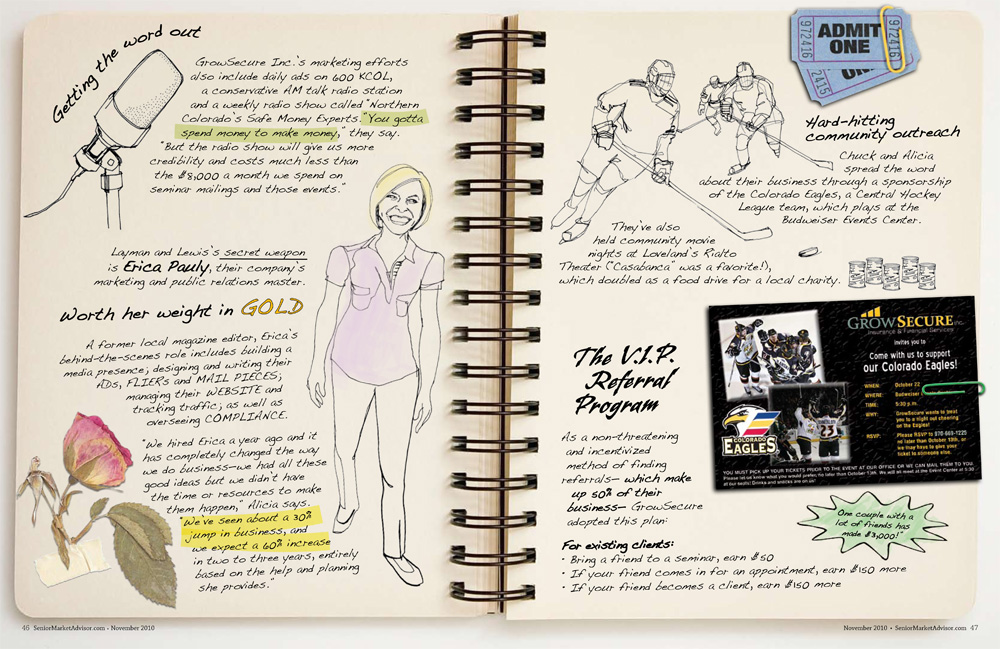 Getting the word out
GrowSecure Inc.'s marketing efforts
also include daily ads on 600 KCOL,
a conservative AM talk radio station
and a weekly radio show called "Northern
Colorado's Safe Money Experts. "You gotta
spend money to make money," they say.
"But the radio show will give us more
credibility and costs much less than
the $8,000 a month we spend on
seminar mailings and those events."
Layman and Lewis's secret weapon
is Erica Pauly, their company's
marketing and public relations master.
Worth her weight in GOLD
A former local magazine editor, Erica's
behind-the-scenes role includes building a
media presence; designing and writing their
ADs, FLIERs and MAIL PIECES;
managing their WEBSITE and
tracking traffic; as well as
overseeing COMPLIANCE.
"We hired Erica a year ago and it
has completely changed the way
we do business—we had all these
good ideas but we didn't have
the time or resources to make
them happen," Alicia says.
"We've seen about a 30%
jump in business, and
we expect a 60% increase
in two to three years, entirely
based on the help and planning
she provides."
46 SeniorMarketAdvisor.com • November 2010
972416
ADMIT
ONE
972416
2415
Hard-hitting
community outreach
Chuck and Alicia
spread the word
about their business through a sponsorship
of the Colorado Eagles, a Central Hockey
League team, which plays at the
Budweiser Events Center.
They've also
held community movie
nights at Loveland's Rialto
Theater ("Casabanca" was a favorite!),
which doubled as a food drive for a local charity.
GROWSECURE Inc.
Insurance & Financial Services
invites you to
Come with us to support
our Colorado Eagles!
WHEN: October 22
WHERE: Budweiser
TIME: 5:30 p.m.
WHY: GrowSecure wants to treat
you to a night out cheering
on the Eagles!
RSVP: Please RSVP to 970-669-1225
no later than October 13th, or
we may have to give your
ticket to someone else.
COLORADO
EAGLES
23
YOU MUST PICK UP YOUR TICKETS PRIOR TO THE EVENT AT OUR OFFICE OR WE CAN MAIL THEM TO YOU.
Please let us know what you would prefer, no later than October 13th. We will all meet at the Event Center at 5:30
at our seats! Drinks and snacks are on us!
The V.I.P.
Referral
Program
As a non-threatening
and incentivized
method of finding
referrals— which make
up 50% of their
business— GrowSecure
adopted this plan:
One couple with a
lot of friends has
made $3,000!"
For existing clients:
· Bring a friend to a seminar, earn $50
· If your friend comes in for an appointment, earn $150 more
· If your friend becomes a client, earn $150 more
November 2010 • SeniorMarketAdvisor.com 47